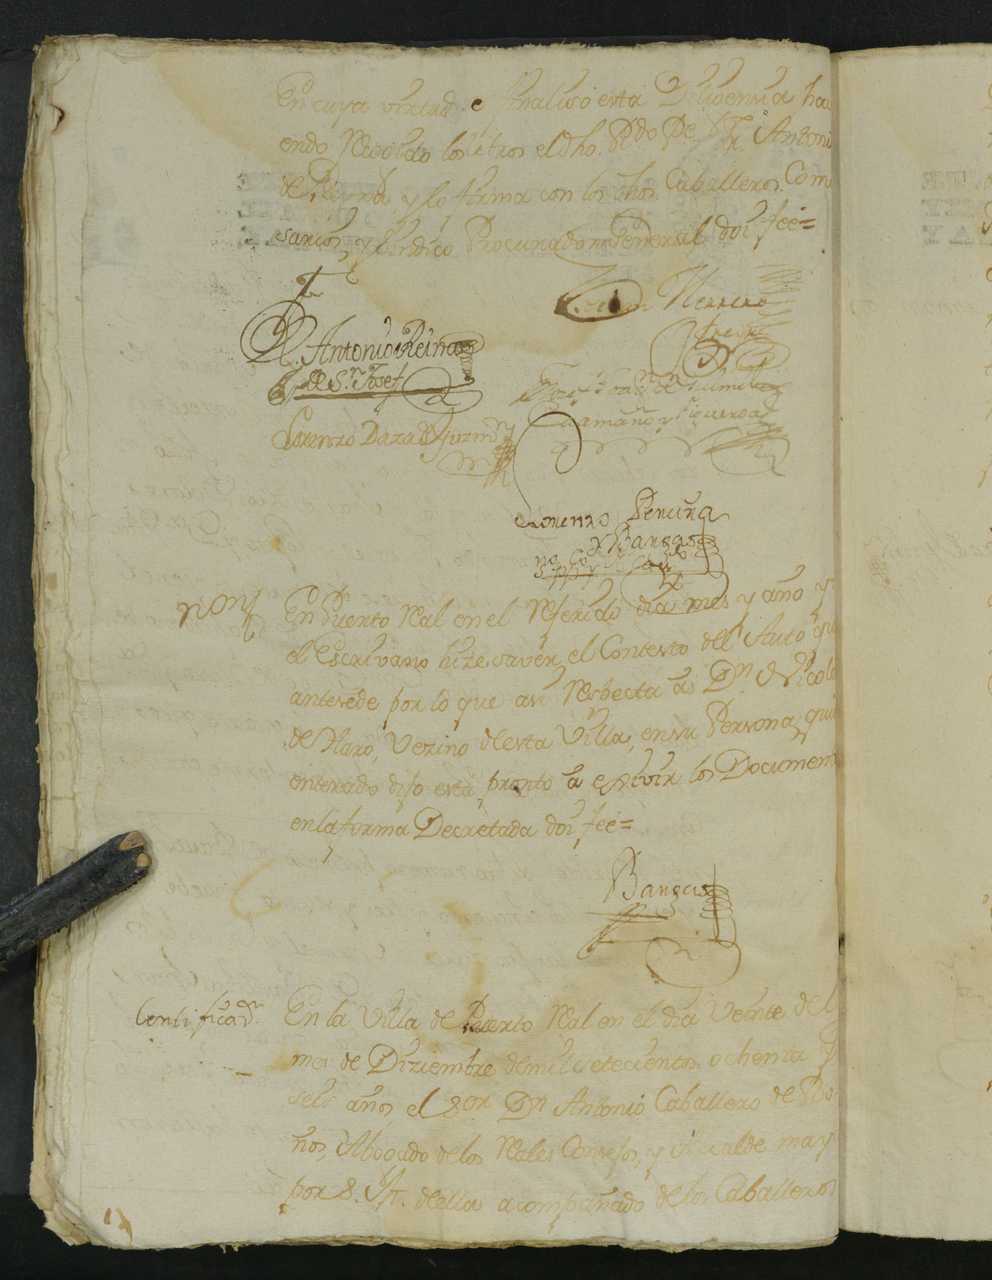 En cuya virtud se finalisó esta Diligencia hav
endo Resevido los Autos el dho. Rdo. Pe. Fr. Antoni
de Reyna y lo firma con los dhos. Caballeros Comi
sarios, y Síndico Procurador General doi feé=
Fr. Antonio de Reina
de Sn. Josef
Herrero
Lorenzo Daza de Guzmn
Caamaño y Figueroa
Lorenzo
y Bargas
not.
En Puerto Real en el Referido dia mes y año y
el Escrivano hize saver el Contexto del Auto qu
antesede por lo que asi Respecta a Dn. Nicolas
de Haro, Vezino de esta Villa, en su Persona, qui
enterado dijo está pronto a exsivir los Document
en la forma Decretada doi feé=
Bargas
Certificaon.
En la Villa de Puerto Real en el dia Veinte del
mes de Diziembre de mil setecientos ochenta y
seis años el Sor. Dn. Antonio Caballero de
ños, Abogado de los Reales Consejos, y Alcalde may
por S. M. de ella acompañado de los Caballeros